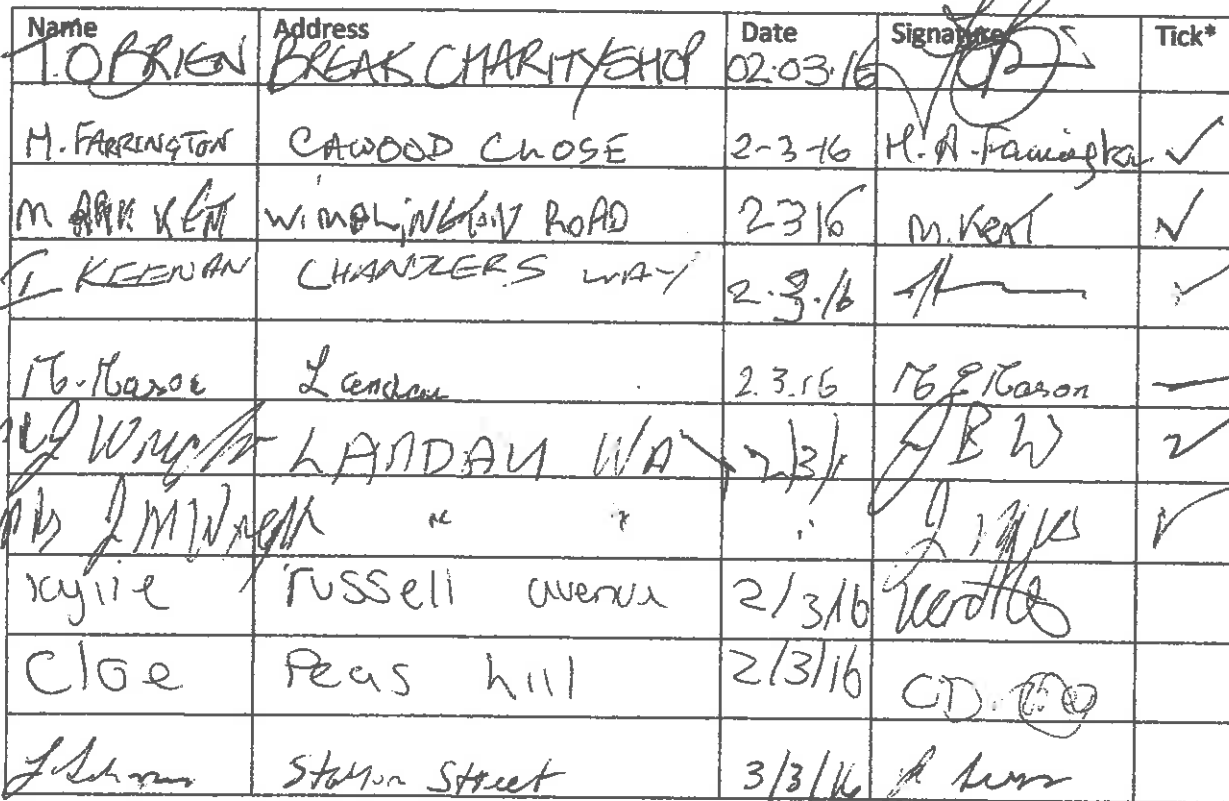 Name Address Date Signature Tick*
T. O BRIEN BREAK CHARITY SHOP 02.03.16
M. FARRINGTON CAWOOD CLOSE 2-3-16 M.A. Farrington ✓
MARK KENT WIMBLINGTON ROAD 2 3 16 M. Kent ✓
I KEENAN CHANDLERS WAY 2.3.16 ✓
M. Mason Landau 2.3.16 M E Mason
Mr J Wright LANDAU WAY 2/3/1 J B W ✓
Mrs J M Wright " " " ✓
Kylie russell avenue 2/3/16
Cloe Peas hill 2/3/16 CD
Station Street 3/3/16